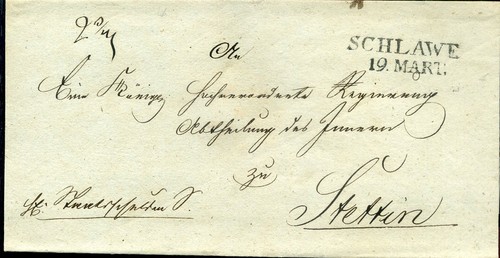 An
SCHLAWE
19. MART.
Eine Königl. Hochverordnete Regierung
Abtheilung des Innern
zu
Stettin
Staatsschulden S.